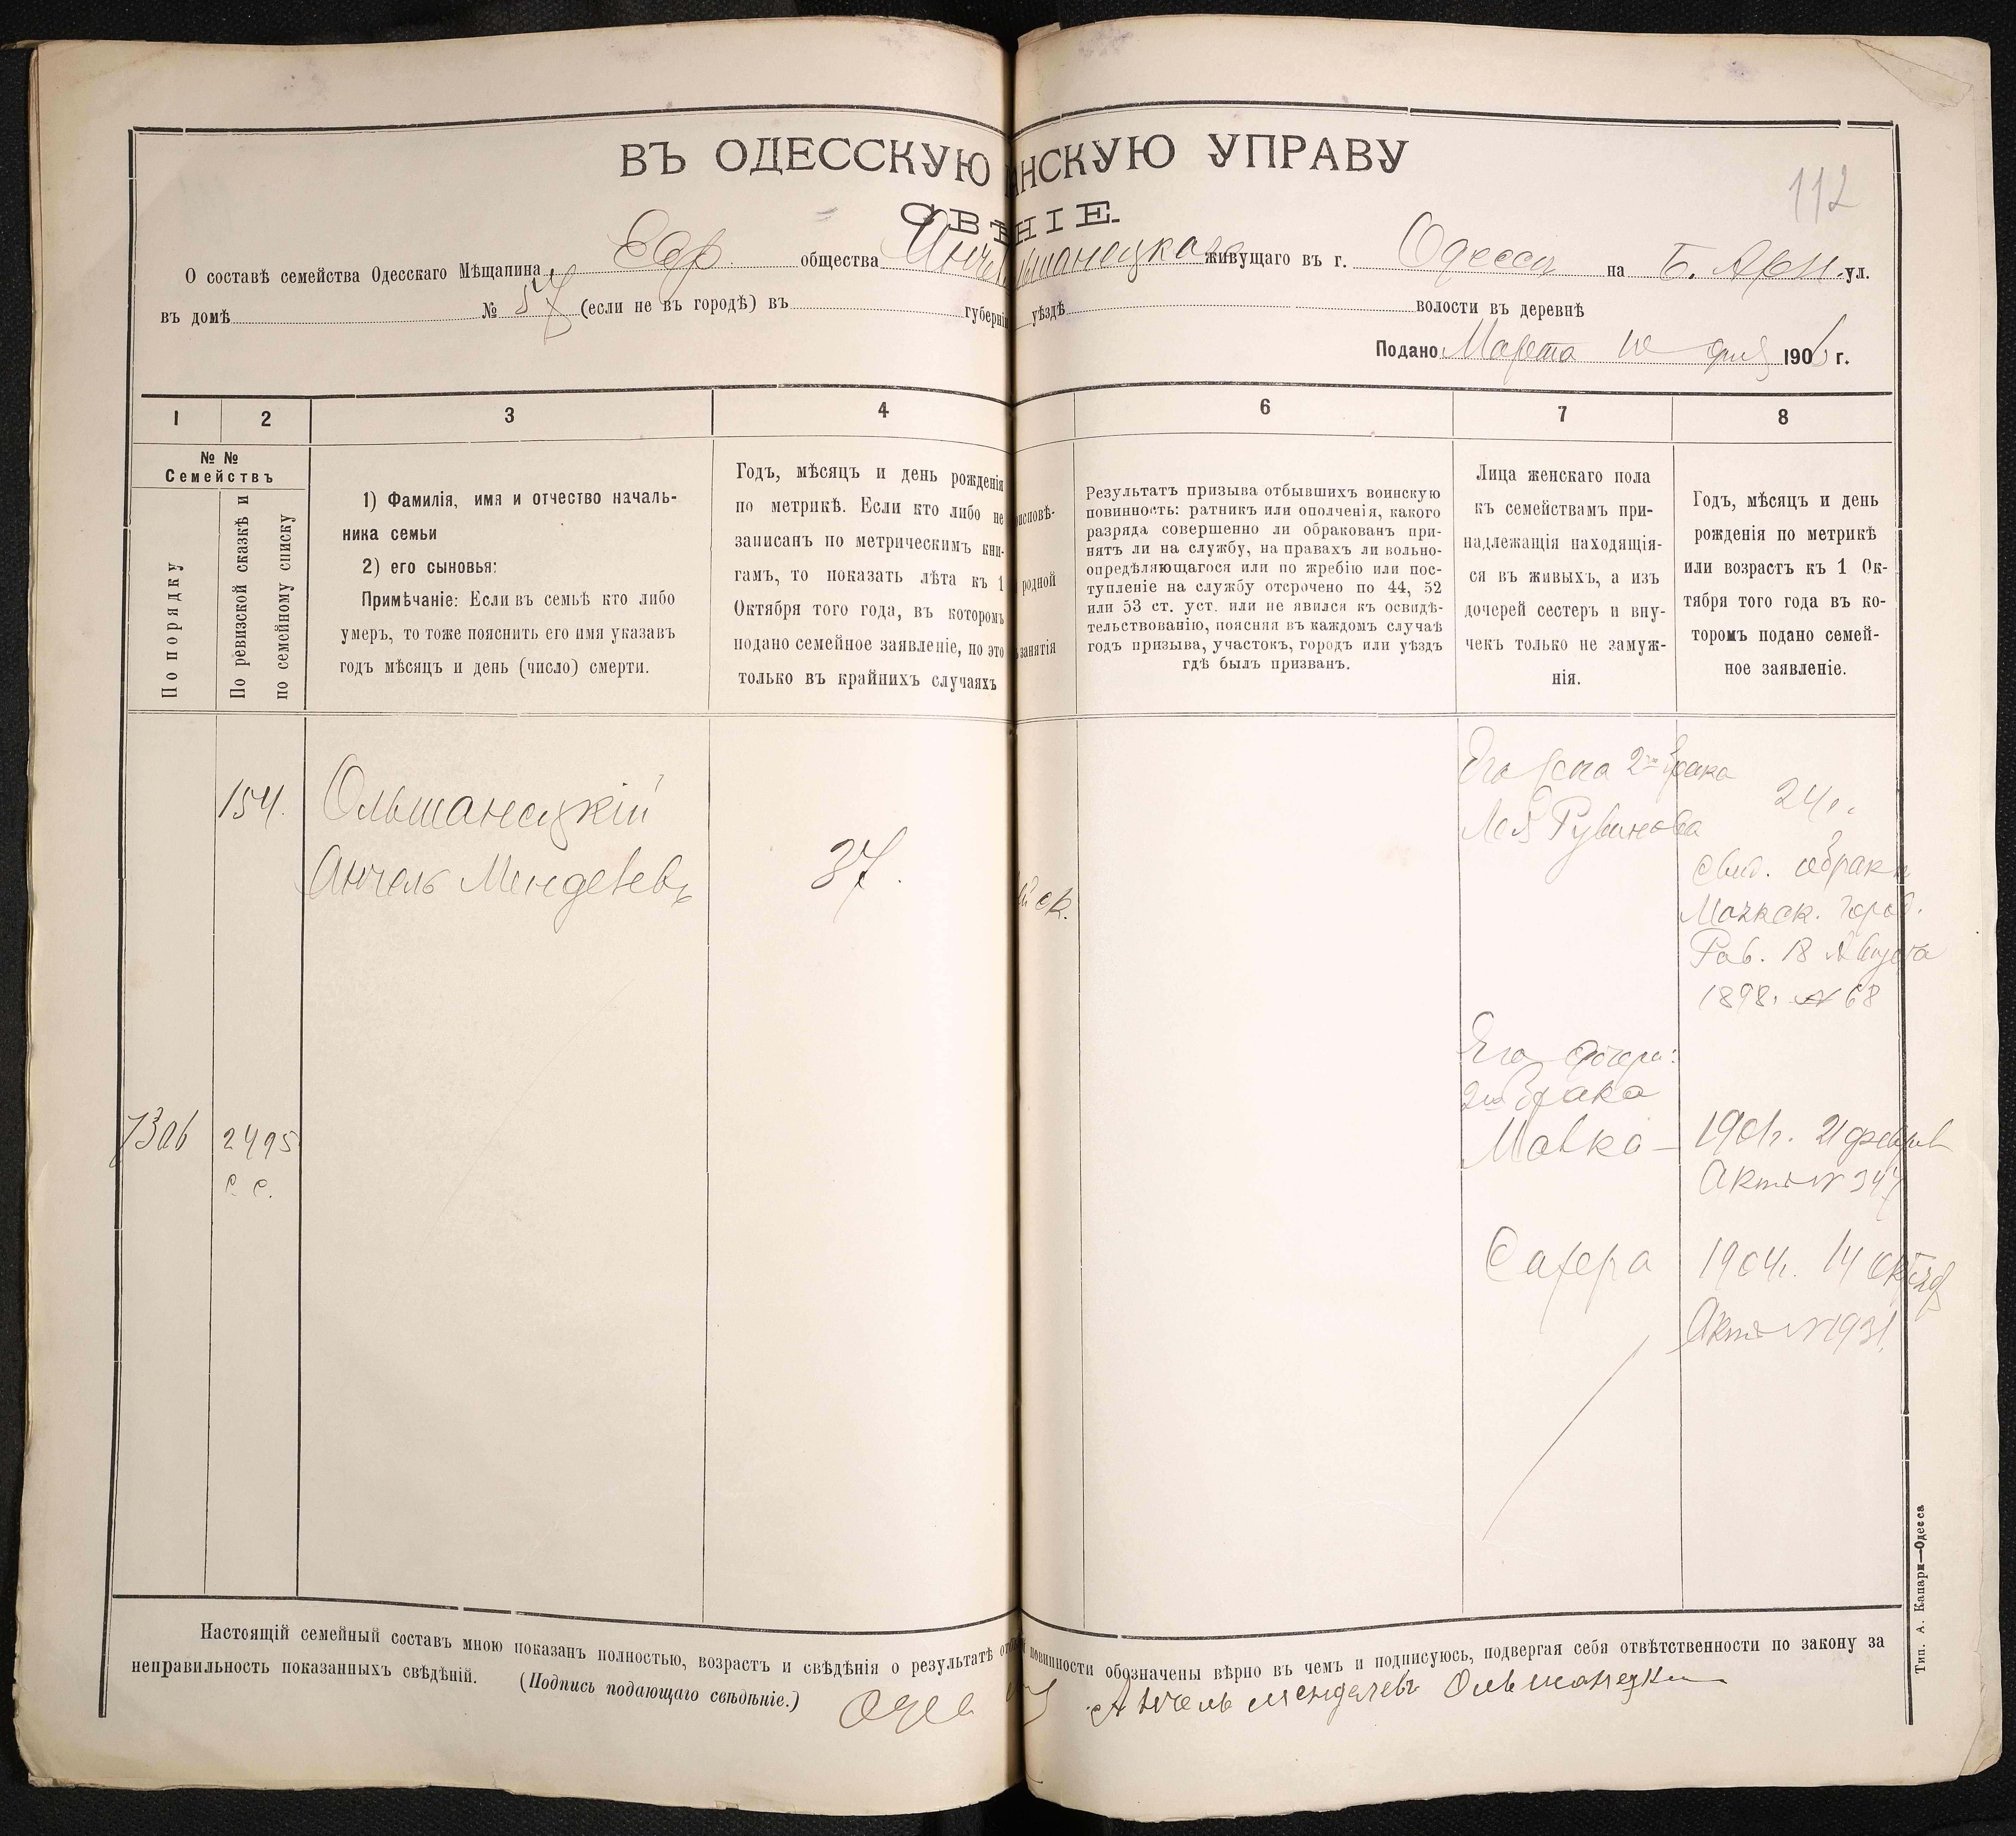 112
ВЪ ОДЕССКУЮ АНСКУЮ УПРАВУ
СВѢ НІЕ.
О составѣ семейства Одесскаго Мѣщанина Евр. общества Анчел шанецкаго живущаго въ г. Одесса на Б. Арн. ул.
въ домѣ № 57 (если не въ городѣ) въ губерніи уѣздѣ волости въ деревнѣ
Подано Марта 10 дня 1906 г.
1 2 3 4 6 7 8
№ №
Семействъ
По порядку
По ревизской сказкѣ и
по семейному списку
1) Фамилія, имя и отчество началь-
ника семьи
2) его сыновья:
Примѣчаніе: Если въ семьѣ кто либо
умеръ, то тоже пояснить его имя указавъ
годъ мѣсяцъ и день (число) смерти.
Годъ, мѣсяцъ и день рожденія
по метрикѣ. Если кто либо не
записанъ по метрическимъ кни-
гамъ, то показать лѣта къ 1
Октября того года, въ которомъ
подано семейное заявленіе, но это
только въ крайнихъ случаяхъ
исповѣ-
родной
занятія
Результатъ призыва отбывшихъ воинскую
повинность: ратникъ или ополченія, какого
разряда совершенно ли обракованъ при-
нятъ ли на службу, на правахъ ли вольно-
опредѣляющагося или по жребію или пос-
тупленіе на службу отсрочено по 44, 52
или 53 ст. уст. или не явился къ освидѣ-
тельствованію, поясняя въ каждомъ случаѣ
годъ призыва, участокъ, городъ или уѣздъ
гдѣ былъ призванъ.
Лица женскаго пола
къ семействамъ при-
надлежащія находящія-
ся въ живыхъ, а изъ
дочерей сестеръ и вну-
чекъ только не замуж-
нія.
Годъ, мѣсяцъ и день
рожденія по метрикѣ
или возрастъ къ 1 Ок-
тября того года въ ко-
торомъ подано семей-
ное заявленіе.
154. Ольшанецкій
Анчель Менделевъ 37.
й ск.
Его жена 2го брака
Лея Рувинова
24 г.
Свид. о бракѣ
город.
Рав. 18 Августа
1898. № 68
Его дочери:
2го брака
1306 2495
с. с.
Малка — 1901г. 21 феврал
Актъ № 347
Сафера 1904г. 14 Октяб
Актъ № 1931
Настоящій семейный составъ мною показанъ полностью, возрастъ и свѣдѣнія о результатѣ от повинности обозначены вѣрно въ чемъ и подписуюсь, подвергая себя отвѣтственности по закону за
неправильность показанныхъ свѣдѣній. (Подпись подающаго свѣдѣніе.) Анчель Менделевъ Ольшанецки
Тип. А. Капари—Одесса